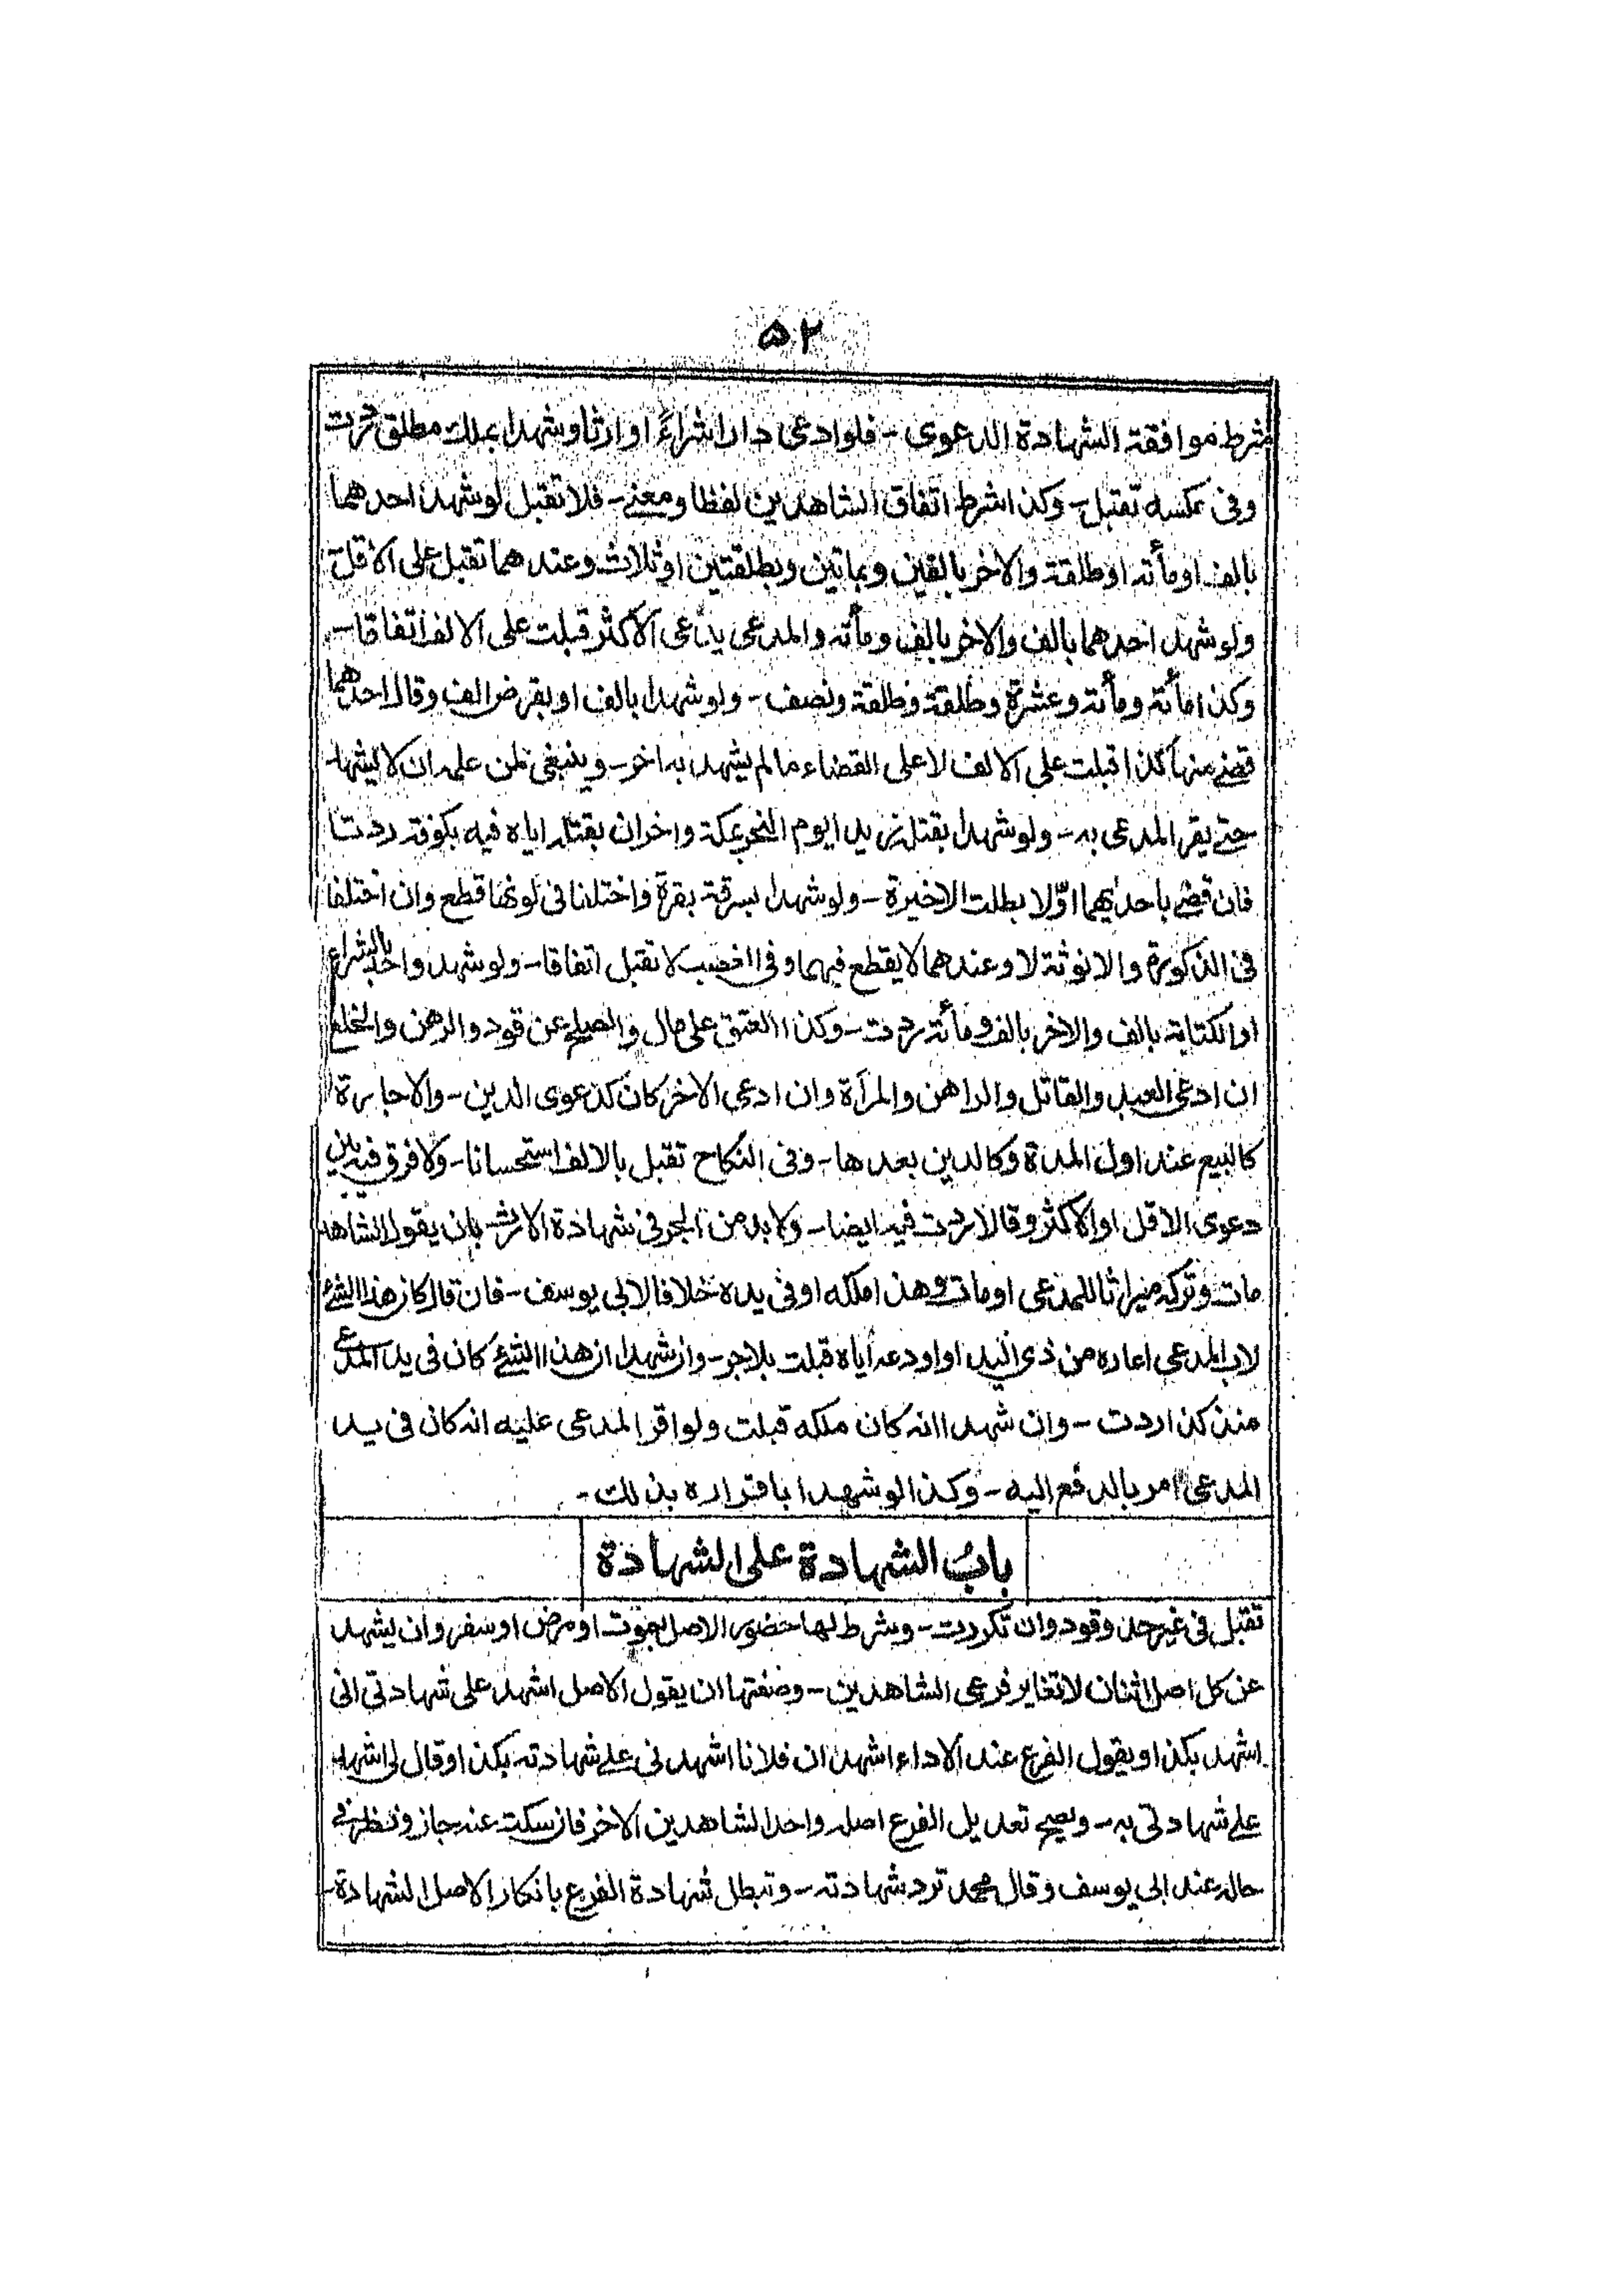 ۵۲
شرط موافقة الشهادة الدعوى - فلوادعى دارا شراءً او ارثا وشهدا بملك مطلق ردت
وفى عكسه تقبل - وكذا شرط اتفاق الشاهدين لفظا ومعنے - فلا تقبل لو شهد احدهما
بالف او مأته او طلقة والاخر بالفين وبماتين وبطلقتين او ثلاث وعندهما تقبل على الاقل
ولو شهد احدهما بالف والاخر بالف ومأته والمدعى يدعى الاكثر قبلت على الالف اتفاقا -
وكذا مأتة ومأتة وعشرة وطلقة وطلقة ونصف - ولو شهدا بالف او بقرض الف وقال احدهما
قضے منها كذا قبلت على الالف لا على القضاء مالم يشهد به اخر - وينبغى لمن علمه ان لا يشهد
حتے يقر المدعى به - ولو شهدا بقتله زيدا يوم النحر بمكة واخران بقتله اياه فيه بكوفة ردتا
فان قضے باحديهما اوّلا بطلت الاخيرة - ولو شهدا بسرقة بقرة واختلفا فى لونها قطع وان اختلفا
فى الذكورة والانوثة لا وعندهما لا يقطع فيهما وفى الغصب لا تقبل اتفاقا - ولو شهد واحد بالشراء
او الكتابة بالف والاخر بالف ومأتة ردت - وكذا العتق على مال والصلح عن قود والرهن والخلع
ان ادعى العبد والقاتل والراهن والمرأة وان ادعى الاخر كان كدعوى الدين - والاجارة
كالبيع عند اول المدة وكالدين بعدها - وفى النكاح تقبل بالالف استحسانا - ولا فرق فيه بين
دعوى الاقل او الاكثر وقالا ردت فيه ايضا - ولا بد من الجر فى شهادة الارث بان يقول الشاهد
مات وتركه ميراثا للمدعى او مات وهذا ملكه او فى يده خلافا لابى يوسف - فان قال كان هذا الشئ
لاب المدعى اعاره من ذى اليد او اودعه اياه قبلت بلا جر - وان شهدا ان هذا الشئ كان فى يد المدعى
منذ كذا ردت - وان شهدا انه كان ملكه قبلت ولو اقر المدعى عليه انه كان فى يد
المدعى امر بالدفع اليه - وكذا لو شهدا باقراره بذلك -
بابُ الشهادة على الشهادة
تقبل فى غير حد وقود وان تكررت - وشرط لها حضور الاصل بموت او مرض او سفر وان يشهد
عن كل اصل اثنان لا تغاير فرعى الشاهدين - وصفتها ان يقول الاصل اشهد على شهادتى انى
اشهد بكذا ويقول الفرع عند الاداء اشهد ان فلانا اشهدنى علے شهادته بكذا وقال لى اشهد
علے شهادتى به - ويصح تعديل الفرع اصله واحد الشاهدين الاخر فان سكت عنه جاز وينظر فى
حاله عند ابى يوسف وقال محمد ترد شهادته - وتبطل شهادة الفرع بانكار الاصل الشهادة -